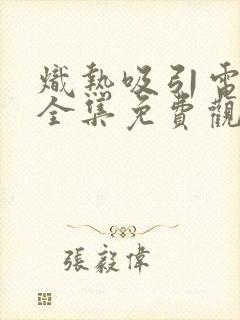 熾熱吸引電
全集免費觀
張毅偉